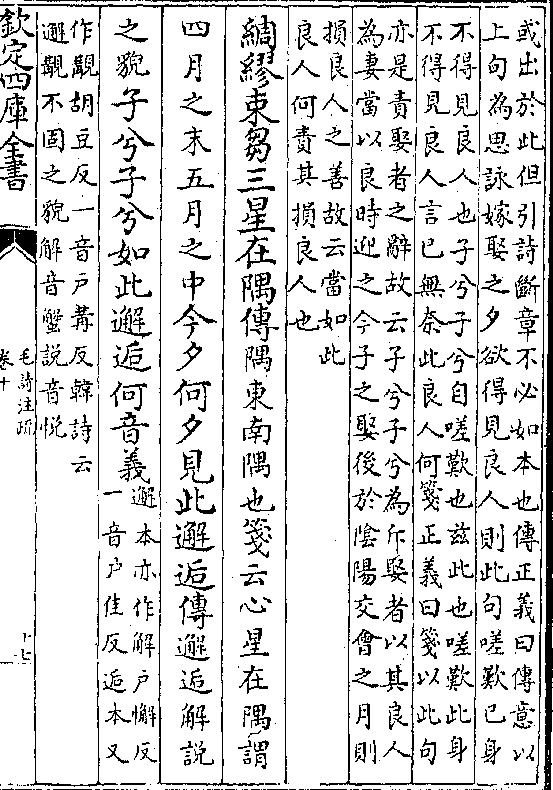 或出於此但引詩斷章不必如本也傳正義曰傳意以
上句為思詠嫁娶之夕欲得見良人則此句嗟歎己身
不得見良人也子兮子兮自嗟歎也兹此也嗟歎此身
不得見良人言已無奈此良人何箋正義曰箋以此句
亦是責娶者之辭故云子兮子兮為斥娶者以其良人
為妻當以良時迎之今子之娶後於陰陽交會之月則
損良人之善故云當如此
良人何責其損良人也
綢繆束芻三星在隅傳隅東南隅也箋云心星在隅謂
四月之末五月之中今夕何夕見此邂逅傳邂逅解說
之貌子兮子兮如此邂逅何音義邂本亦作解户懈反
一音户佳反逅本又
作覯胡豆反一音户冓反韓詩云
邂覯不固之貌解音蟹説音悦
欽定四庫全書
毛詩注疏
卷十
十七